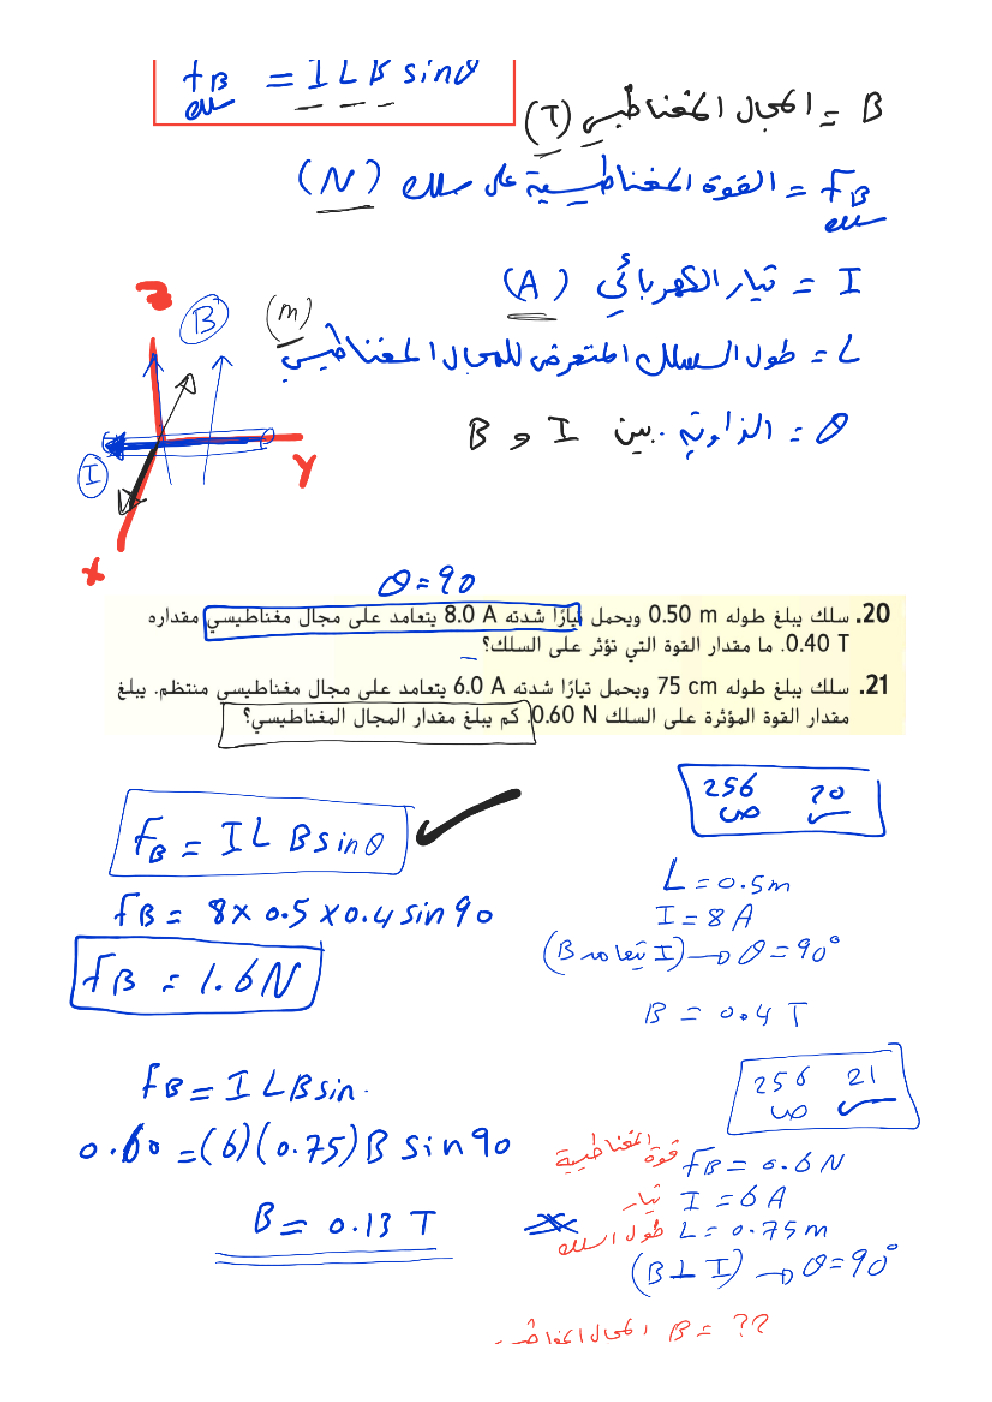 fB = I L B sinθ
سلك
B = المجال المغناطيسي (T)
fB = القوة المغناطيسية على سلك (N)
سلك
I = تيار الكهربائي (A)
L = طول السلك المتعرض للمجال المغناطيسي (m)
θ = الزاوية بين I و B
Z
B
I
Y
X
θ = 90
20. سلك يبلغ طوله 0.50 m ويحمل تيارًا شدته 8.0 A يتعامد على مجال مغناطيسي مقداره
0.40 T. ما مقدار القوة التي تؤثر على السلك؟
21. سلك يبلغ طوله 75 cm ويحمل تيارًا شدته 6.0 A يتعامد على مجال مغناطيسي منتظم. يبلغ
مقدار القوة المؤثرة على السلك 0.60 N. كم يبلغ مقدار المجال المغناطيسي؟
20 256
ص
fB = I L B sinθ
L = 0.5m
I = 8 A
fB = 8 × 0.5 × 0.4 sin 90
(B يتعامد I) → θ = 90°
fB = 1.6 N
B = 0.4 T
21 256
ص
fB = I L B sin
0.60 = (6)(0.75) B sin 90
B = 0.13 T
قوة المغناطيسية fB = 0.6 N
تيار I = 6 A
طول السلك L = 0.75 m
(B ⊥ I) → θ = 90°
المجال المغناطي B = ??